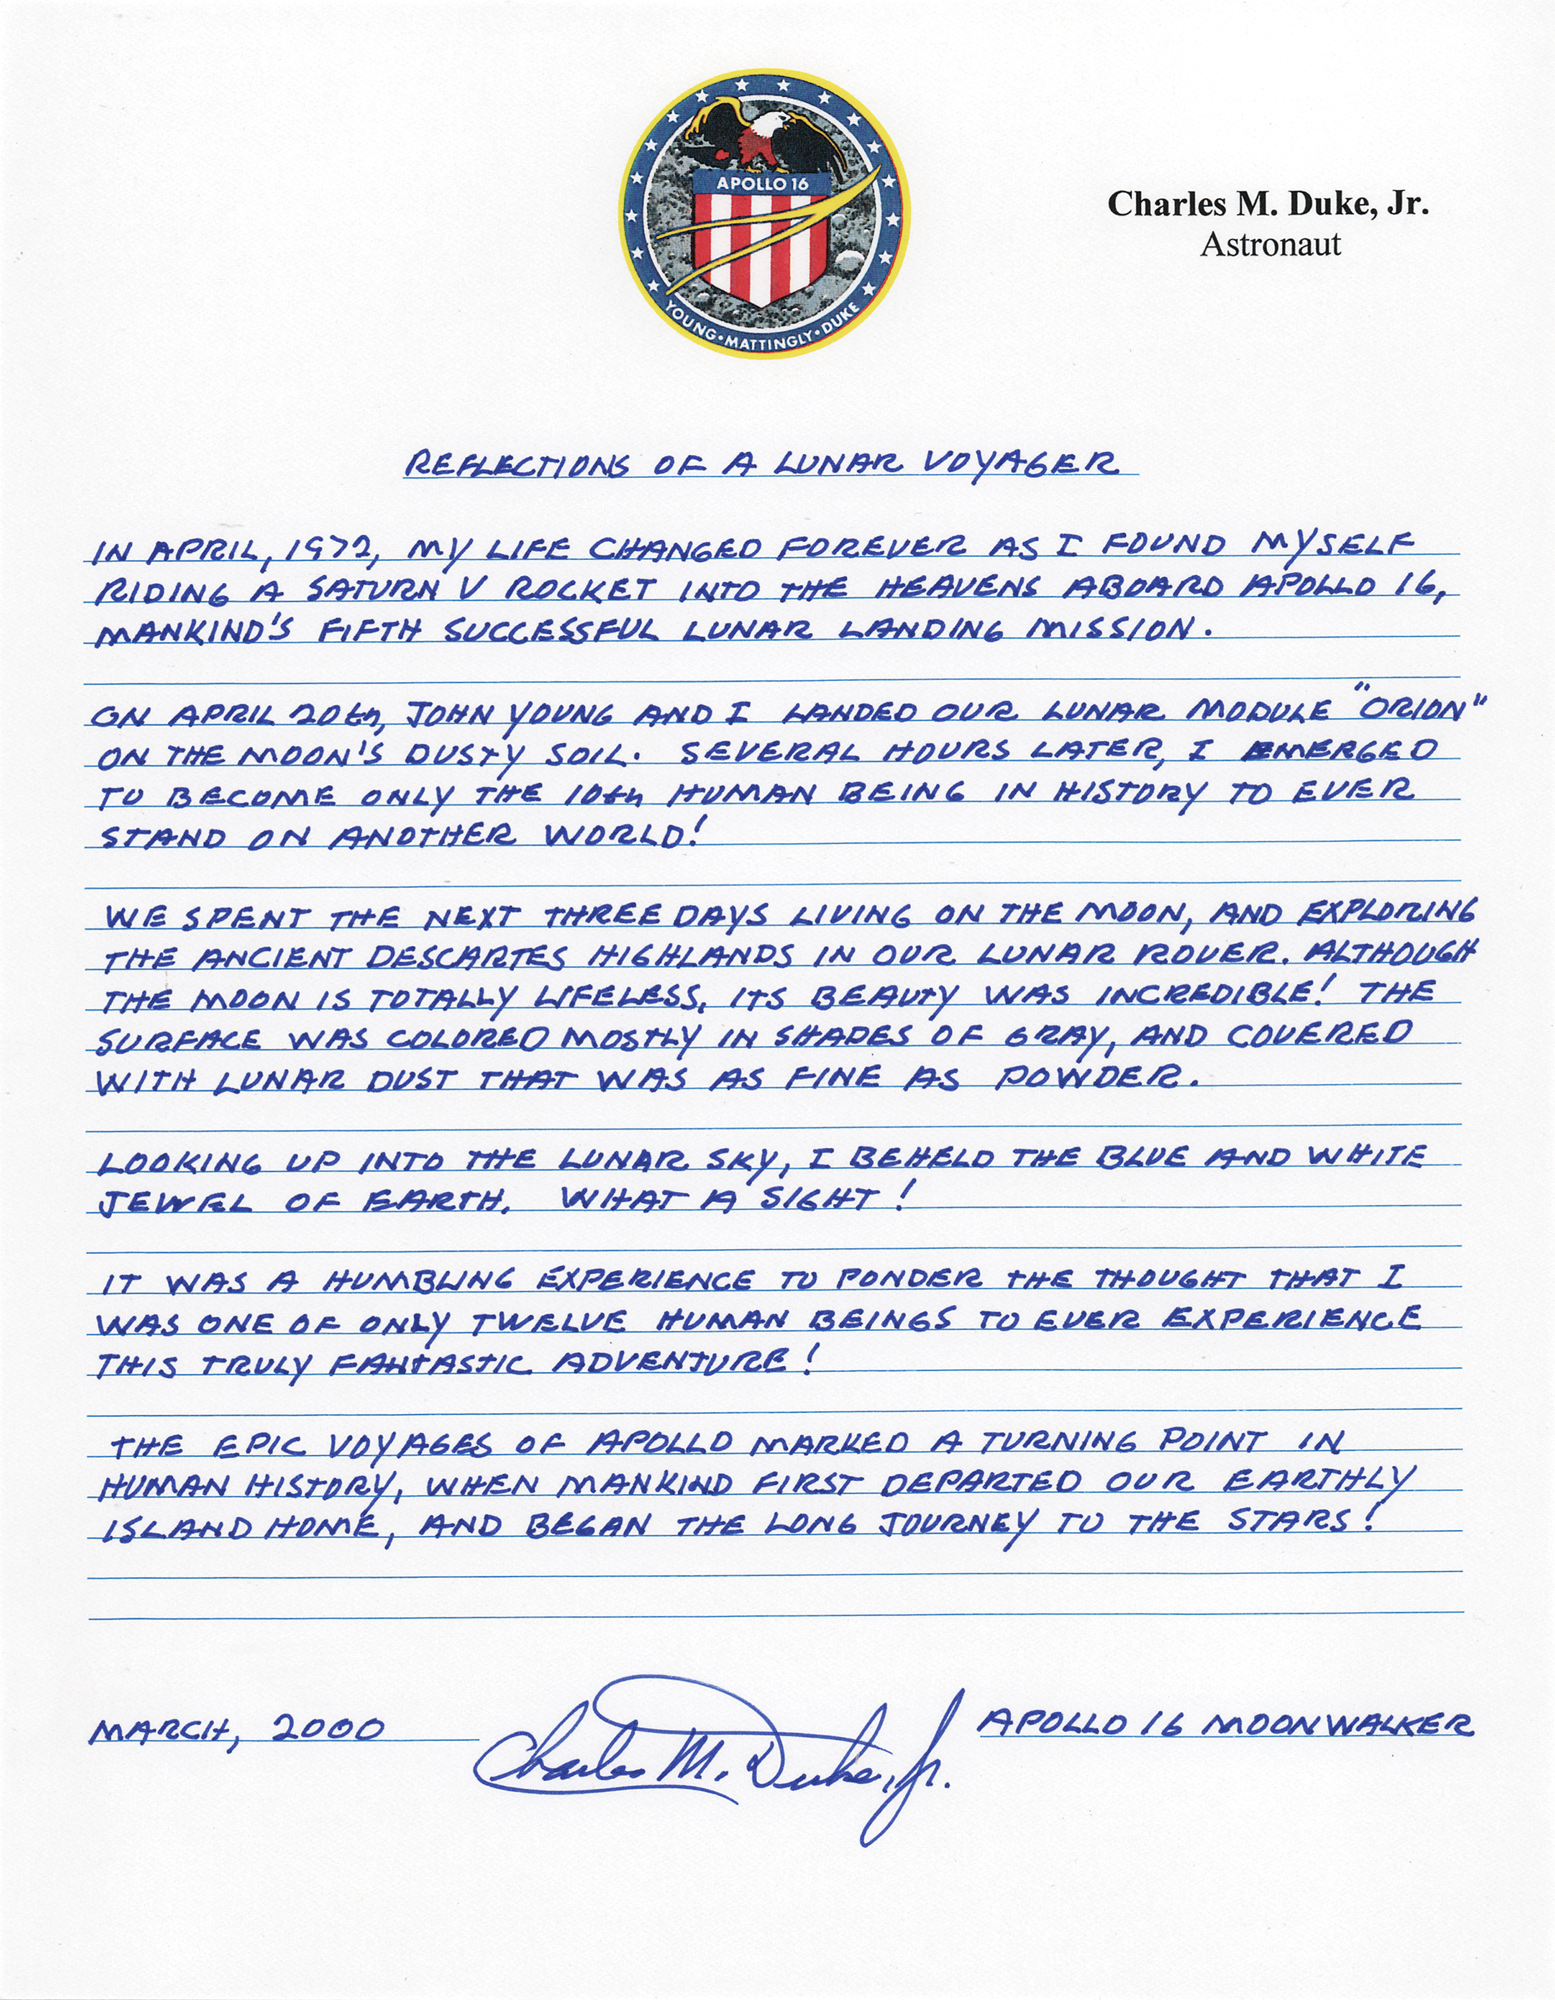 APOLLO 16
YOUNG • MATTINGLY • DUKE
Charles M. Duke, Jr.
Astronaut
REFLECTIONS OF A LUNAR VOYAGER
IN APRIL, 1972, MY LIFE CHANGED FOREVER AS I FOUND MYSELF
RIDING A SATURN V ROCKET INTO THE HEAVENS ABOARD APOLLO 16,
MANKIND'S FIFTH SUCCESSFUL LUNAR LANDING MISSION.
ON APRIL 20th, JOHN YOUNG AND I LANDED OUR LUNAR MODULE "ORION"
ON THE MOON'S DUSTY SOIL. SEVERAL HOURS LATER, I EMERGED
TO BECOME ONLY THE 10th HUMAN BEING IN HISTORY TO EVER
STAND ON ANOTHER WORLD!
WE SPENT THE NEXT THREE DAYS LIVING ON THE MOON, AND EXPLORING
THE ANCIENT DESCARTES HIGHLANDS IN OUR LUNAR ROVER. ALTHOUGH
THE MOON IS TOTALLY LIFELESS, ITS BEAUTY WAS INCREDIBLE! THE
SURFACE WAS COLORED MOSTLY IN SHADES OF GRAY, AND COVERED
WITH LUNAR DUST THAT WAS AS FINE AS POWDER.
LOOKING UP INTO THE LUNAR SKY, I BEHELD THE BLUE AND WHITE
JEWEL OF EARTH. WHAT A SIGHT!
IT WAS A HUMBLING EXPERIENCE TO PONDER THE THOUGHT THAT I
WAS ONE OF ONLY TWELVE HUMAN BEINGS TO EVER EXPERIENCE
THIS TRULY FANTASTIC ADVENTURE!
THE EPIC VOYAGES OF APOLLO MARKED A TURNING POINT IN
HUMAN HISTORY, WHEN MANKIND FIRST DEPARTED OUR EARTHLY
ISLAND HOME, AND BEGAN THE LONG JOURNEY TO THE STARS!
MARCH, 2000 Charles M. Duke, Jr. APOLLO 16 MOONWALKER